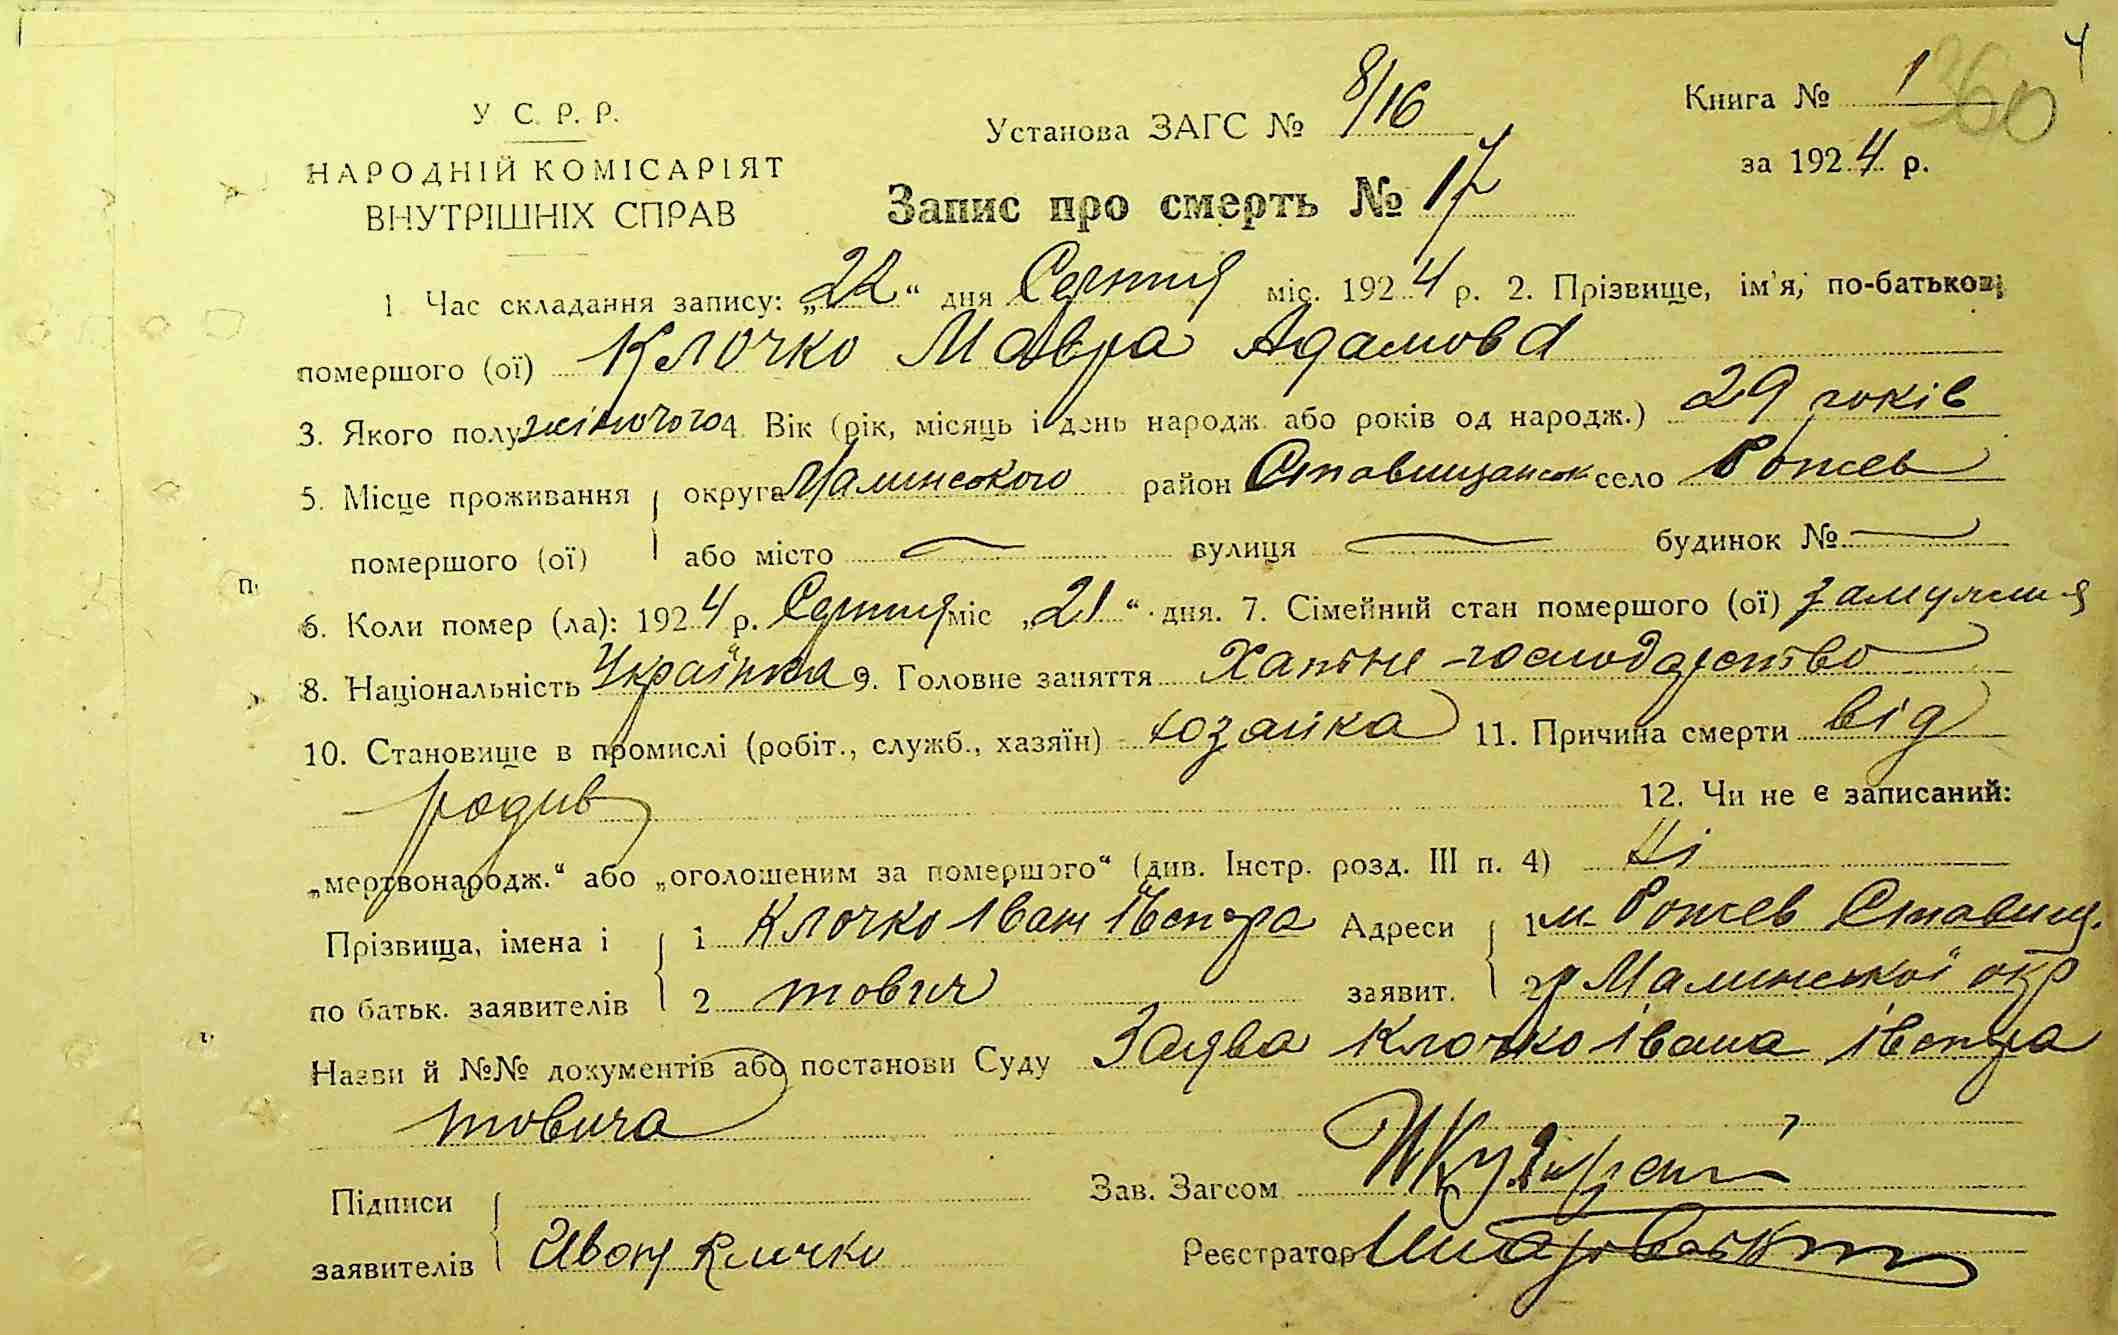 4
У С. Р. Р.
НАРОДНІЙ КОМІСАРІЯТ
ВНУТРІШНІХ СПРАВ
Установа ЗАГС № 8/16
Книга № 1
360
за 1924 р.
Запис про смерть № 17
1 Час складання запису: „22“ дня Серпня міс. 1924 р. 2. Прізвище, ім'я, по-батькові
помершого (ої) Клочко Мавра Адамова
3. Якого полу жіночого 4. Вік (рік, місяць і день народж. або років од народж.) 29 років
5. Місце проживання округа Малинського район Ставищанськ село Рожев
помершого (ої) або місто вулиця будинок №
6. Коли помер (ла): 1924 р. Серпня міс „21“ дня. 7. Сімейний стан помершого (ої) замужня
8. Національність Українка 9. Головне заняття Хатне-господарство
10. Становище в промислі (робіт., служб., хазяїн) хозайка 11. Причина смерти від
родив 12. Чи не є записаний:
„мертвонародж.“ або „оголошеним за помершого“ (див. Інстр. розд. III п. 4) Ні
Прізвища, імена і 1 Клочко Іван Івстра Адреси 1 м. Рожев Ставищ.
по батьк. заявителів 2 тович заявит. 2 р Малинської окр
Назви й №№ документів або постанови Суду Заява Клочко Івана Івстра
товича
Підписи Зав. Загсом
заявителів Иван Клочко Реєстратор